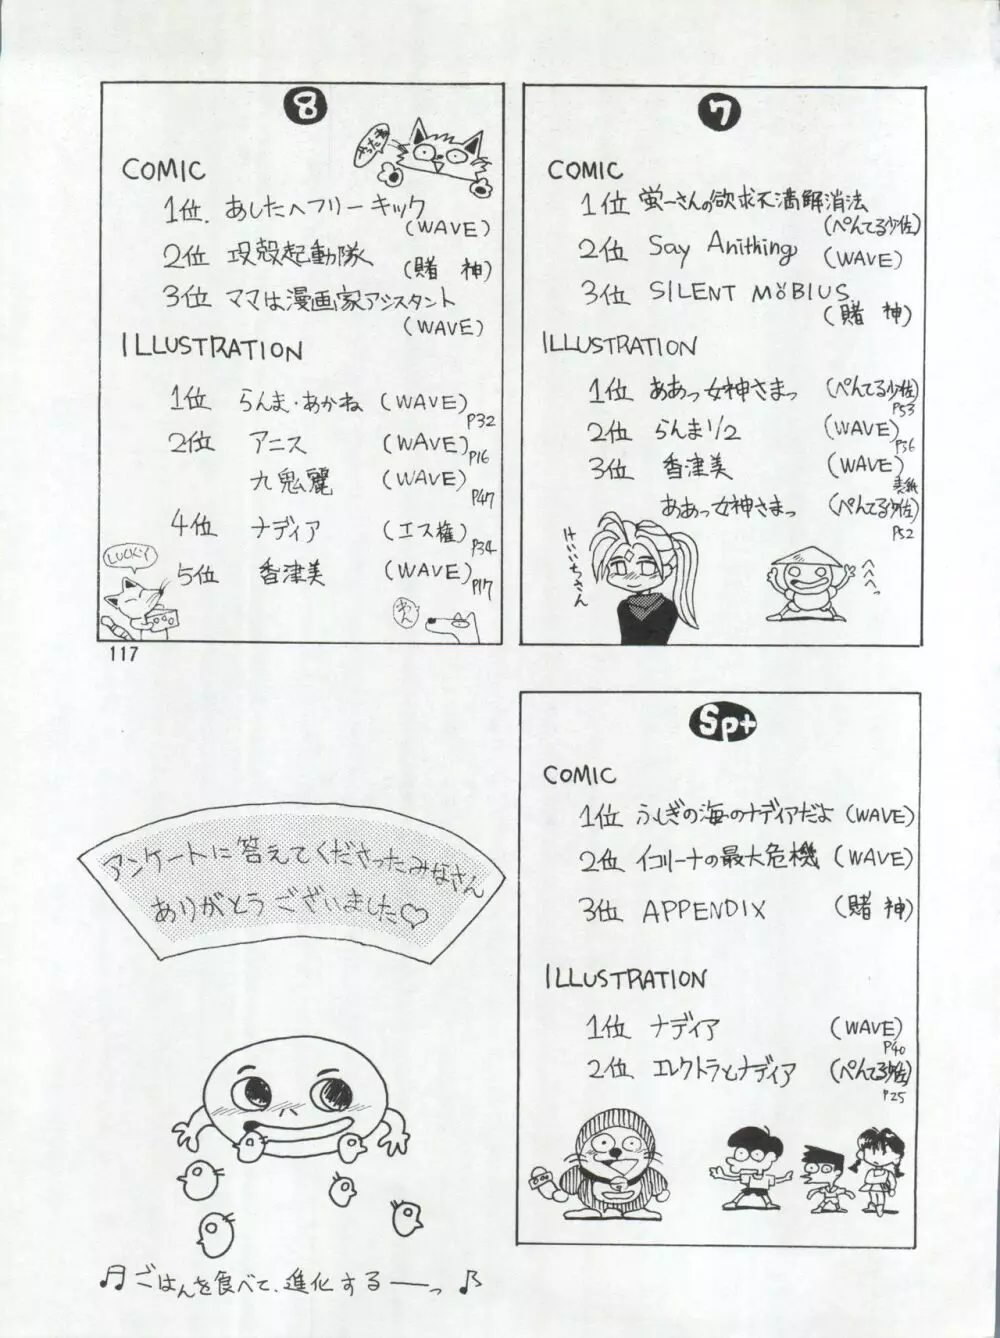 8
やったね
COMIC
1位. あしたへフリーキック
(WAVE)
2位 攻殻起動隊
(賭 神)
3位 ママは漫画家アシスタント
(WAVE)
ILLUSTRATION
1位 らんま・あかね (WAVE)
P32
2位 アニス (WAVE)
P16
九鬼麗 (WAVE)
P47
4位 ナディア (エス権)
P34
5位 香津美 (WAVE)
P17
LUCKy!
わん
117
7
COMIC
1位 蛍一さんの欲求不満解消法
(ぺんてる少佐)
2位 Say Anithing (WAVE)
3位 SILENT MöBIUS
(賭 神)
ILLUSTRATION
1位 ああっ女神さまっ (ぺんてる少佐)
P53
2位 らんま1/2 (WAVE)
P36
3位 香津美 (WAVE)
表紙
ああっ女神さまっ (ぺんてる少佐)
P52
けいいちさん
へへへっ
Sp+
COMIC
1位 ふしぎの海のナディアだよ (WAVE)
2位 イコリーナの最大危機 (WAVE)
3位 APPENDIX (賭 神)
ILLUSTRATION
1位 ナディア (WAVE)
P40
2位 エレクトラとナディア (ぺんてる少佐)
P25
アンケートに答えてくださったみなさん
ありがとうございました♡
♫ごはんを食べて、進化するーーっ♪